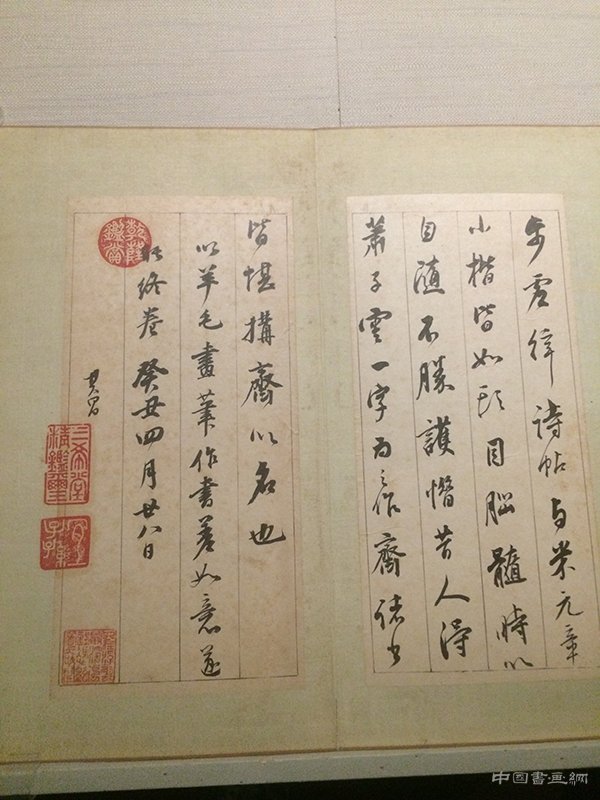 步虛詩帖与米元章
小楷皆如頭目腦髓時以
自隨不勝護惜昔人得
蕭子雲一字為之作齋諸書
皆堪搆齋以名也
以羊毛畫筆作書差如意遂
終卷 癸丑四月廿八日
其昌
乾隆鑑賞
三希堂精鑑璽
宜子孫
中国書画網